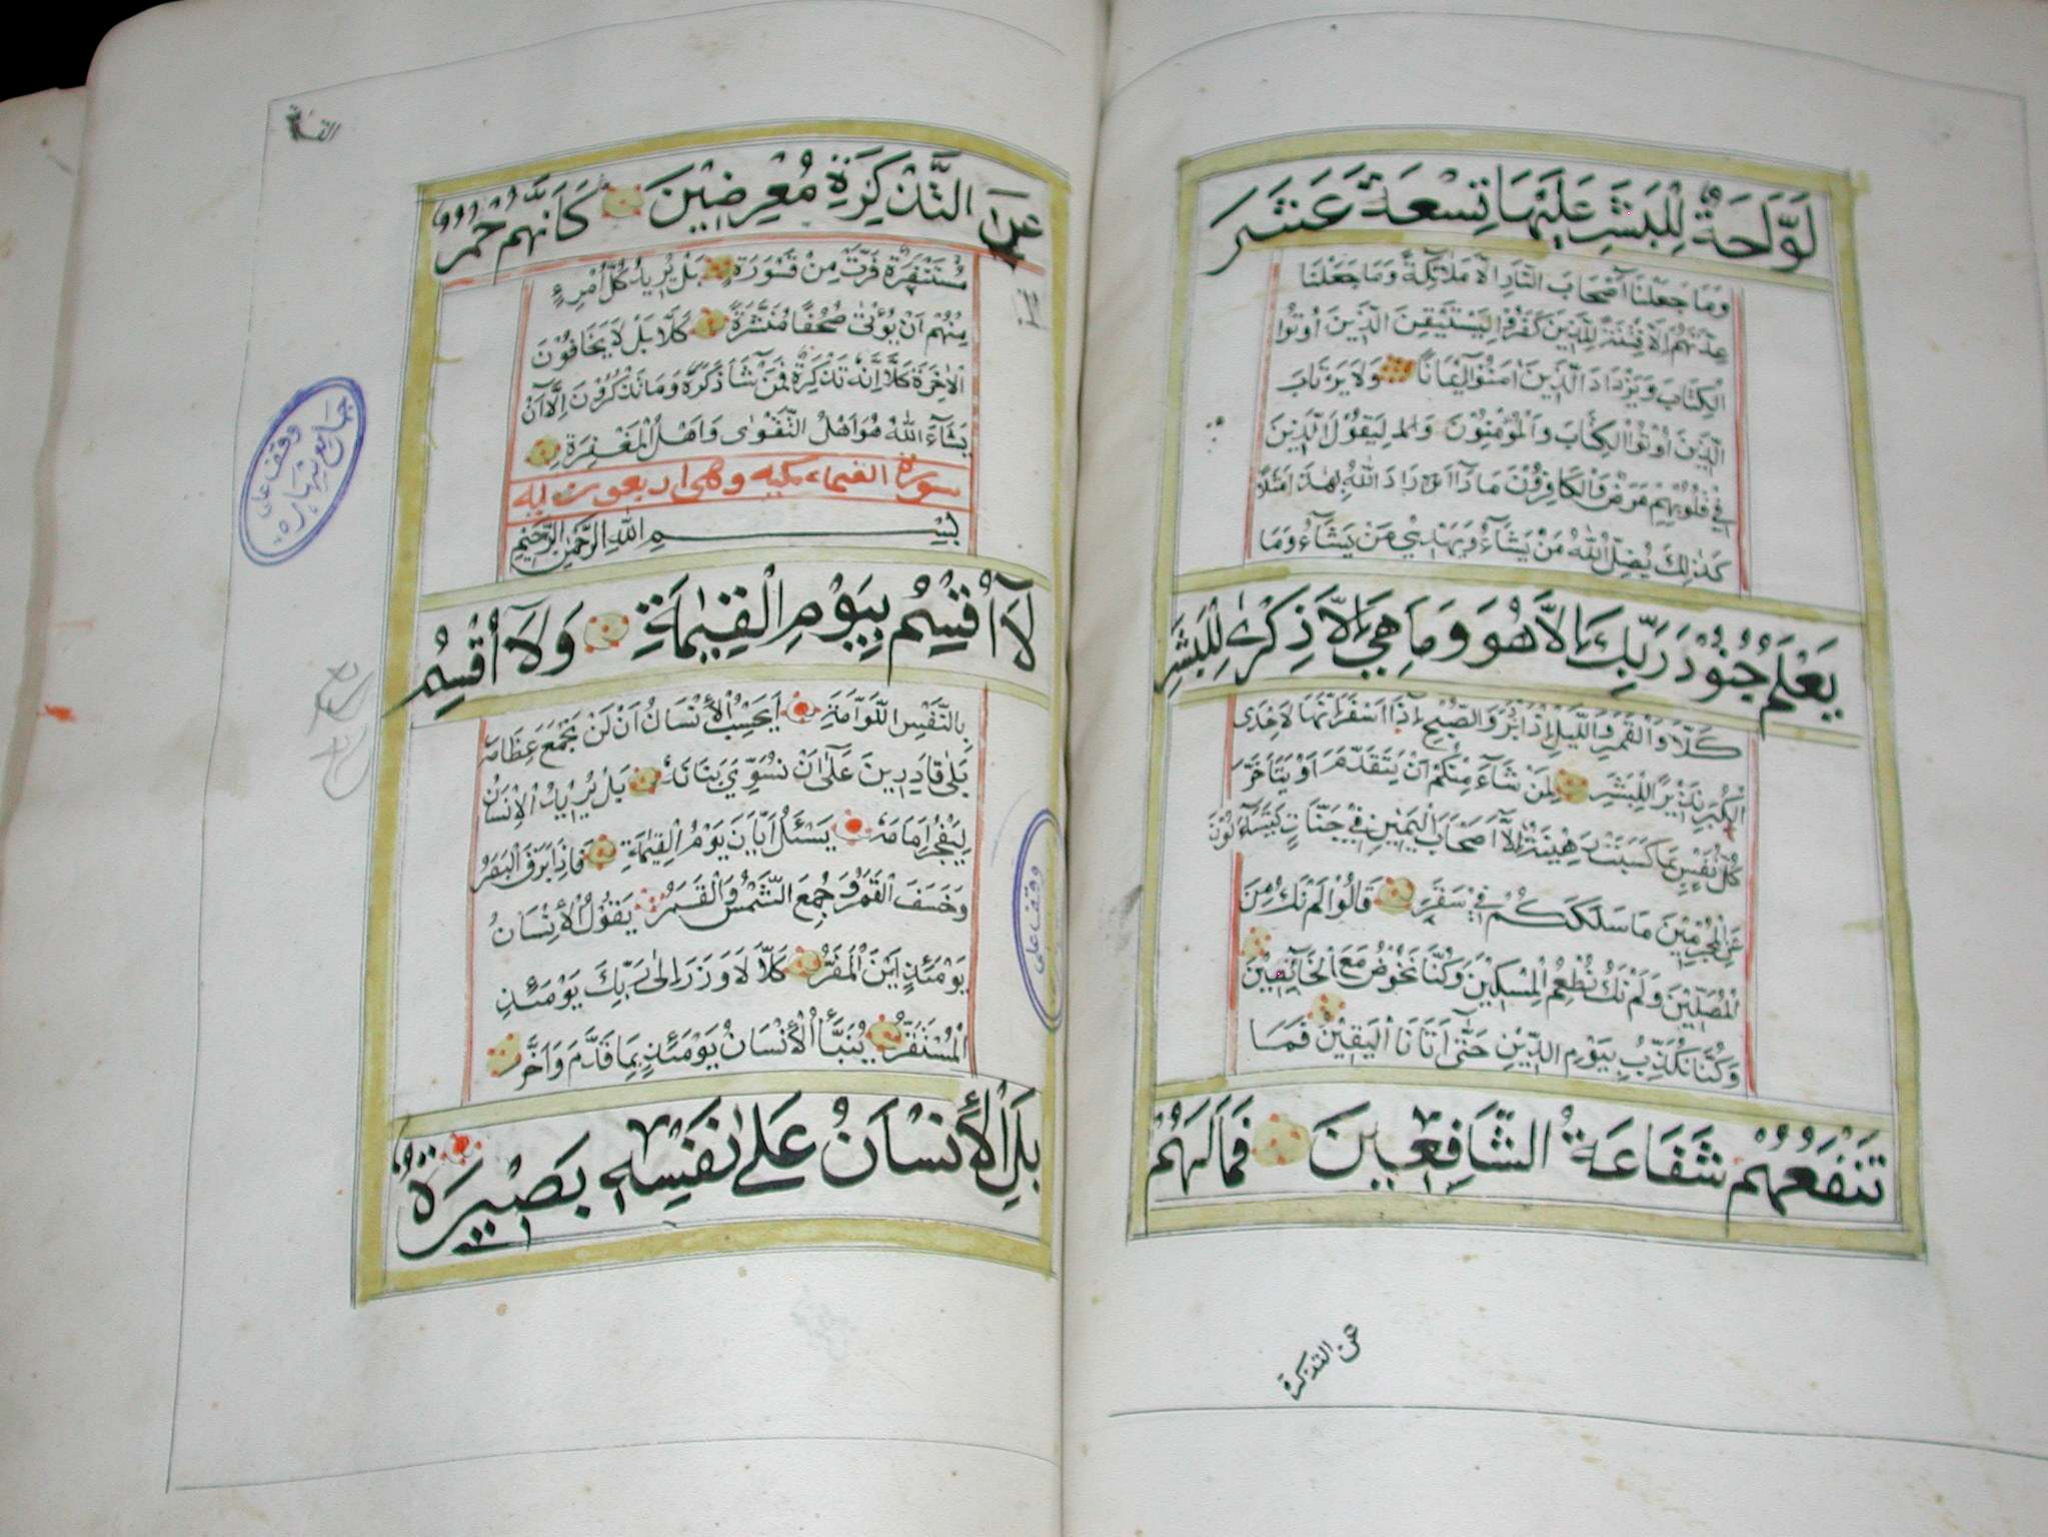 لَوَّاحَةٌ لِلْبَشَرِ عَلَيْهَا تِسْعَةَ عَشَرَ
وَمَا جَعَلْنَا أَصْحَابَ النَّارِ اِلَّا مَلَائِكَةً وَمَا جَعَلْنَا
عِدَّتَهُمْ اِلَّا فِتْنَةً لِلَّذِينَ كَفَرُوا لِيَسْتَيْقِنَ الَّذِينَ اُوتُوا
الْكِتَابَ وَيَزْدَادَ الَّذِينَ اٰمَنُوا اِيمَانًا وَلَا يَرْتَابَ
الَّذِينَ اُوتُوا الْكِتَابَ وَالْمُؤْمِنُونَ وَلِيَقُولَ الَّذِينَ
فِي قُلُوبِهِمْ مَرَضٌ وَالْكَافِرُونَ مَاذَا اَرَادَ اللهُ بِهٰذَا مَثَلًا
كَذٰلِكَ يُضِلُّ اللهُ مَنْ يَشَآءُ وَيَهْدِي مَنْ يَشَآءُ وَمَا
يَعْلَمُ جُنُودَ رَبِّكَ اِلَّا هُوَ وَمَا هِيَ اِلَّا ذِكْرٰى لِلْبَشَرِ
كَلَّا وَالْقَمَرِ وَاللَّيْلِ اِذْ اَدْبَرَ وَالصُّبْحِ اِذَا اَسْفَرَ اِنَّهَا لَاِحْدَى
الْكُبَرِ نَذِيرًا لِلْبَشَرِ لِمَنْ شَآءَ مِنْكُمْ اَنْ يَتَقَدَّمَ اَوْ يَتَاَخَّرَ
كُلُّ نَفْسٍ بِمَا كَسَبَتْ رَهِينَةٌ اِلَّا اَصْحَابَ الْيَمِينِ فِي جَنَّاتٍ يَتَسَآءَلُونَ
عَنِ الْمُجْرِمِينَ مَا سَلَكَكُمْ فِي سَقَرَ قَالُوا لَمْ نَكُ مِنَ
الْمُصَلِّينَ وَلَمْ نَكُ نُطْعِمُ الْمِسْكِينَ وَكُنَّا نَخُوضُ مَعَ الْخَآئِضِينَ
وَكُنَّا نُكَذِّبُ بِيَوْمِ الدِّينِ حَتّٰى اَتَانَا الْيَقِينُ فَمَا
تَنْفَعُهُمْ شَفَاعَةُ الشَّافِعِينَ فَمَا لَهُمْ
عن التذكرة
عَنِ التَّذْكِرَةِ مُعْرِضِينَ كَاَنَّهُمْ حُمُرٌ
مُسْتَنْفِرَةٌ فَرَّتْ مِنْ قَسْوَرَةٍ بَلْ يُرِيدُ كُلُّ امْرِءٍ
مِنْهُمْ اَنْ يُؤْتٰى صُحُفًا مُنَشَّرَةً كَلَّا بَلْ لَا يَخَافُونَ
الْاٰخِرَةَ كَلَّا اِنَّهُ تَذْكِرَةٌ فَمَنْ شَآءَ ذَكَرَهُ وَمَا تَذْكُرُونَ اِلَّا اَنْ
يَشَآءَ اللهُ هُوَ اَهْلُ التَّقْوٰى وَاَهْلُ الْمَغْفِرَةِ
سورة القيمة مكيه وهى اربعون ايه
بِسْمِ اللهِ الرَّحْمٰنِ الرَّحِيمِ
لَآ اُقْسِمُ بِيَوْمِ الْقِيٰمَةِ وَلَآ اُقْسِمُ
بِالنَّفْسِ اللَّوَّامَةِ اَيَحْسَبُ الْاِنْسَانُ اَنْ لَنْ نَجْمَعَ عِظَامَهُ
بَلٰى قَادِرِينَ عَلٰى اَنْ نُسَوِّيَ بَنَانَهُ بَلْ يُرِيدُ الْاِنْسَانُ
لِيَفْجُرَ اَمَامَهُ يَسْئَلُ اَيَّانَ يَوْمُ الْقِيٰمَةِ فَاِذَا بَرِقَ الْبَصَرُ
وَخَسَفَ الْقَمَرُ وَجُمِعَ الشَّمْسُ وَالْقَمَرُ يَقُولُ الْاِنْسَانُ
يَوْمَئِذٍ اَيْنَ الْمَفَرُّ كَلَّا لَا وَزَرَ اِلٰى رَبِّكَ يَوْمَئِذٍ
الْمُسْتَقَرُّ يُنَبَّؤُا الْاِنْسَانُ يَوْمَئِذٍ بِمَا قَدَّمَ وَاَخَّرَ
بَلِ الْاِنْسَانُ عَلٰى نَفْسِهِ بَصِيرَةٌ
وقف على
وقف على